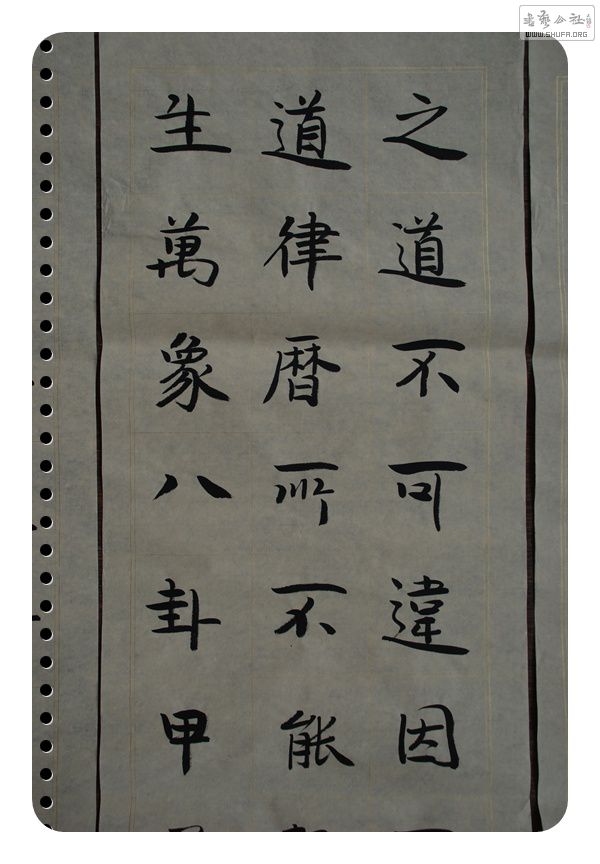 之道不可違因
道律暦所不能
生萬象八卦甲
書藝公社
WWW.SHUFA.ORG